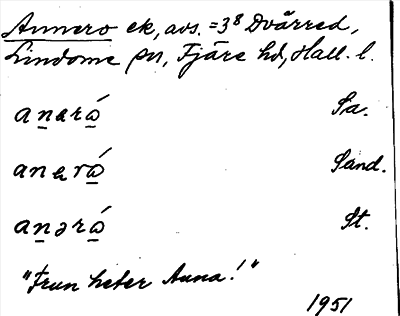 Annero ek, avs. = 3⁸ Dvärred,
Lindome sn, Fjäre hd, Hall. l.
a̲n̲əró̲ Sa.
anəró̲ Sand.
an̲əró̲ St.
"Frun heter Anna!"
1951